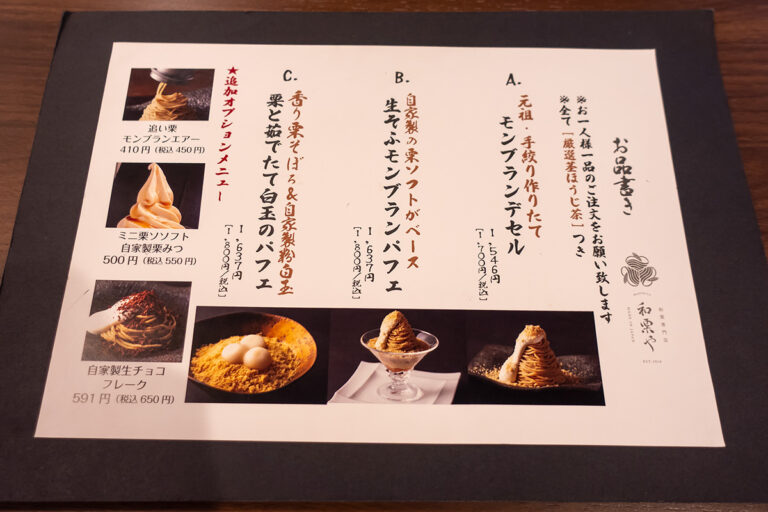 お品書き
※お一人様一品のご注文をお願い致します
※全て「厳選茎ほうじ茶」つき
A.
元祖・手絞り作りたて
モンブランデセル
1,546円
[1,700円/税込]
B.
自家製の栗ソフトがベース
生そふモンブランパフェ
1,637円
[1,800円/税込]
C.
香り栗そぼろ&自家製粉白玉
栗と茹でたて白玉のパフェ
1,637円
[1,800円/税込]
★追加オプションメニュー
追い栗
モンブランエアー
410円(税込450円)
ミニ栗ソソフト
自家製栗みつ
500円(税込550円)
自家製生チョコ
フレーク
591円(税込650円)
和栗専門店
和栗や